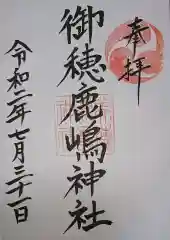 奉拝
御穂鹿嶋神社
令和二年七月三十一日